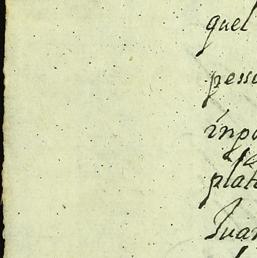 quel
pess
inpo
plat
Juan